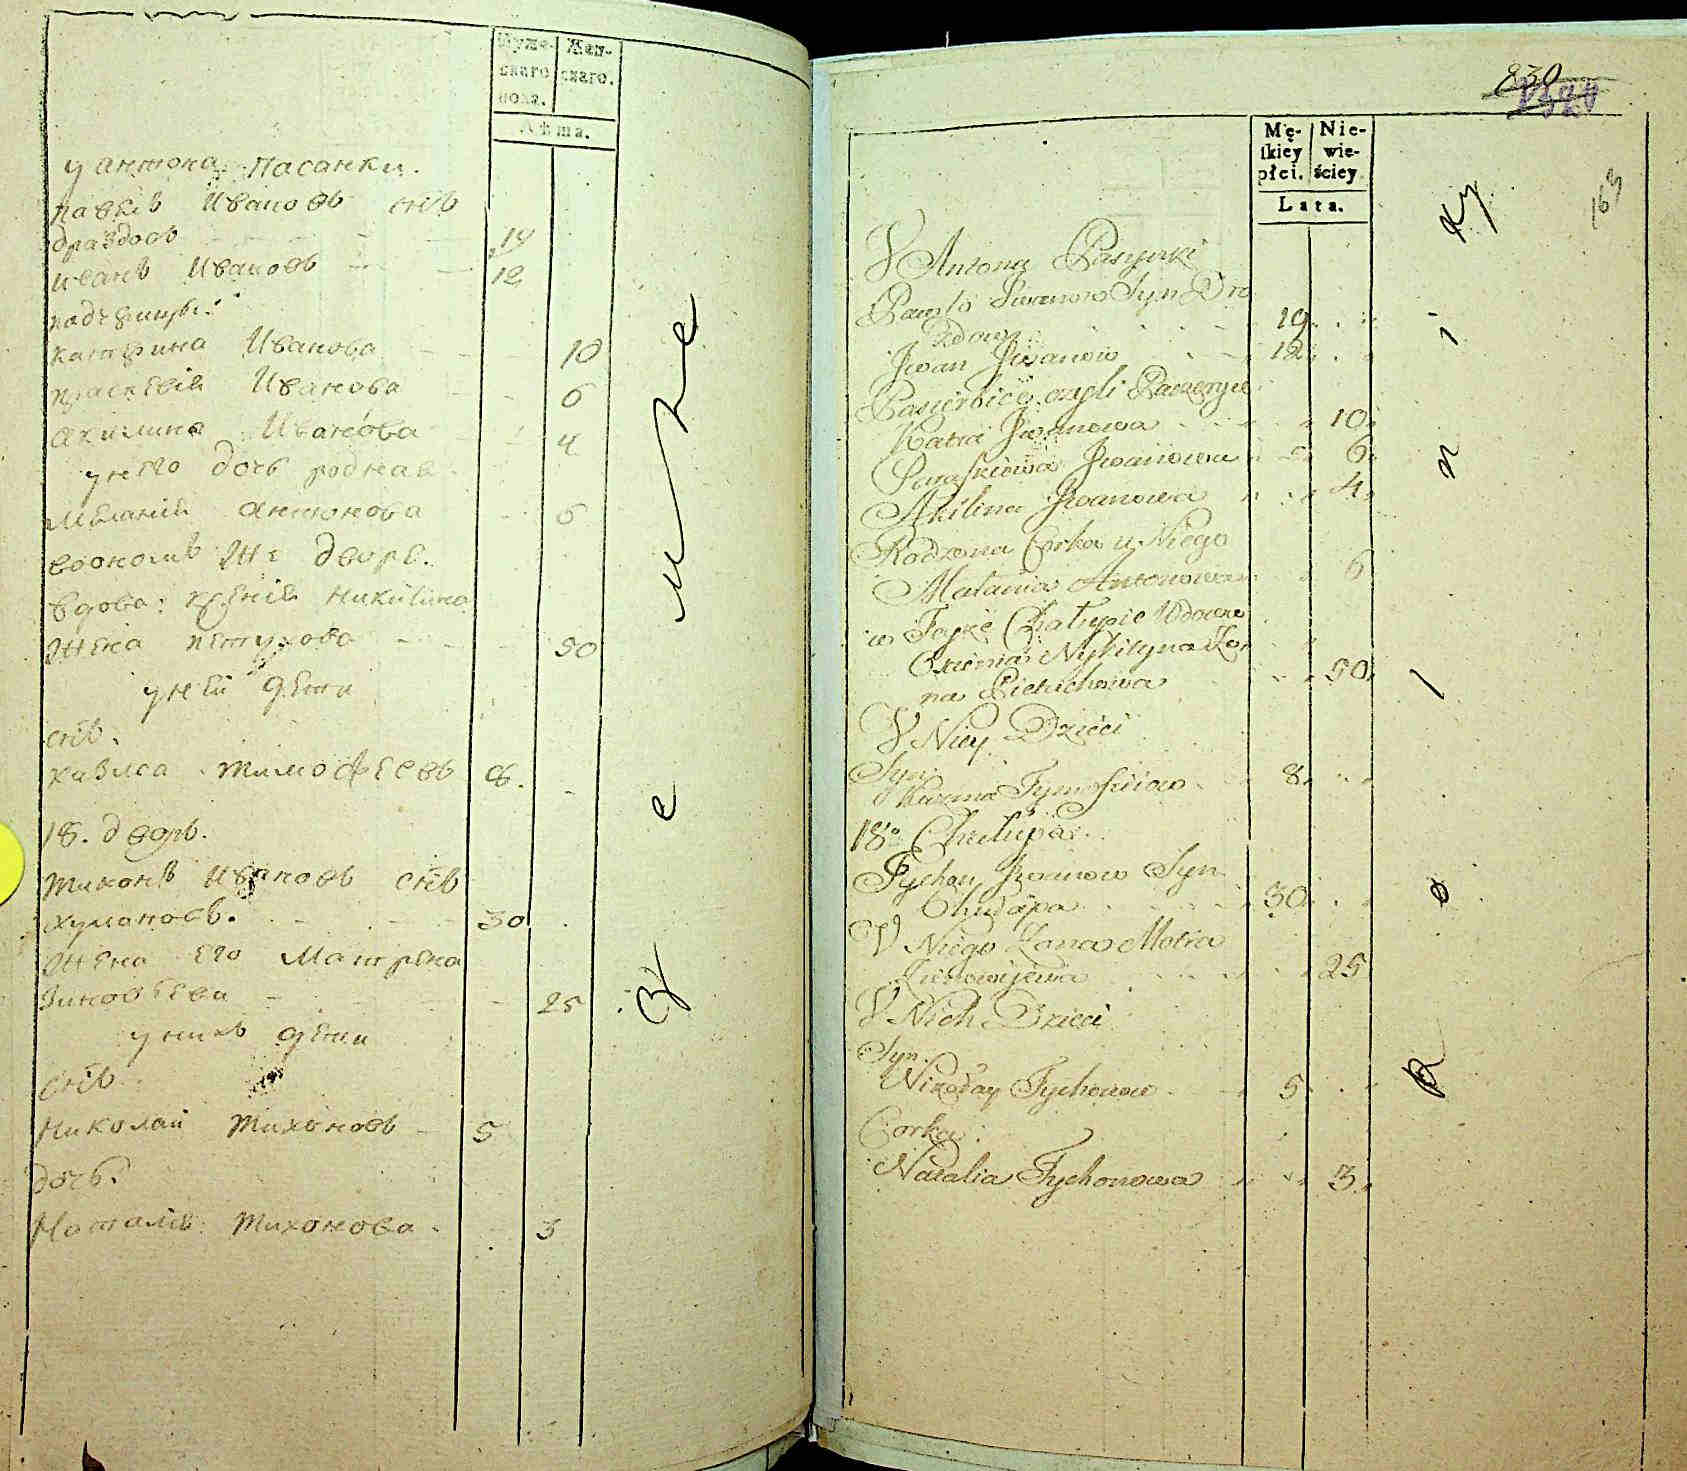 Муже-
скаго
пола.
Жен-
скаго.
Лѣта.
у антона пасанки.
павелъ Ивановъ снъ
драздовъ 19
иванъ Ивановъ 12
падчерицы:
катерина Иванова 10
праскевія Иванова 6
Акилина Иванова 4
у него дочь родная
меланія Антонова 6
воономъ же дворе.
вдова: ксенія никитина
жена петухова 50
у ней дети
снъ.
кузма тимофеевъ 8.
18. дворъ.
тихонъ Ивановъ снъ
хумановъ. 30
жена его Матрена
Зиновеева 25
у нихъ дети
снъ
Николаи Тихоновъ 5
дочь.
Наталія Тихонова. 3
830
163
Mę-
skiey
płci.
Nie-
wie-
ściey.
Lata.
V Antona Pasynki
Paweł Iwanow Syn Dro
zdow 19
Jwan Jwanow 12
Pasierbice czyli
Katra Jwanowa 10
Paraskiewia Jwanowna 6
Akilina Jwanowa 4
Rodzona Corka u Niego
Małania Antonowa 6
w Teyże Chałupie Wdowa
Xienia Nykityna Żo
na Pietuchowa 50
V Niey Dzieci
Syn
Kuzma Tymofieiow 8
18o Chałupa
Tychon Iwanow Syn
30
V Niego Zona Motra
Zienowijewa 25
V Nich Dzieci
Syn.
Nikołay Tychonow 5
Corka:
Natalia Tychonowa 3